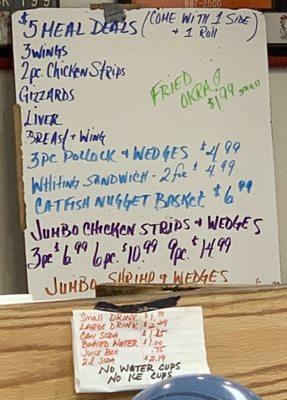 $5 MEAL DEALS (COME WITH 1 SIDE
+ 1 ROLL)
3 WINGS
2pc. CHICKEN STRIPS
GIZZARDS
LIVER
BREAST + WING
FRIED
OKRA
$1.99 small
3PC POLLOCK & WEDGES $4.99
WHITING SANDWICH - 2 for $4.99
CATFISH NUGGET BASKET $6.99
JUMBO CHICKEN STRIPS & WEDGES
3pc $6.99 6pc. $10.99 9pc. $14.99
JUMBO SHRIMP & WEDGES
SMALL DRINK
LARGE DRINK
CAN SODA
BOTTLED WATER $1.00
JUICE BOX .75
2L SODA $2.19
NO WATER CUPS
NO ICE CUPS